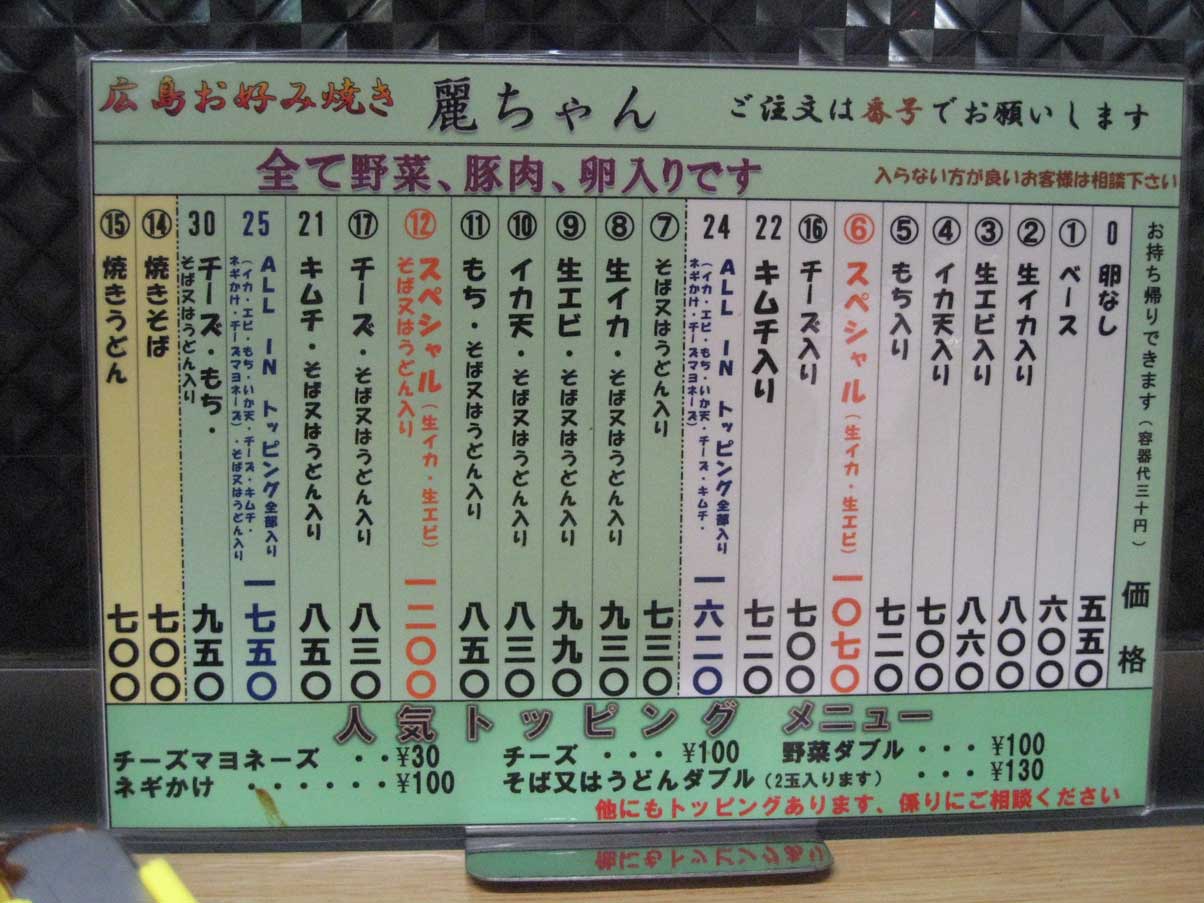 広島お好み焼き 麗ちゃん ご注文は番号でお願いします
全て野菜、豚肉、卵入りです 入らない方が良いお客様は相談下さい
お持ち帰りできます(容器代三十円) 価格
0 卵なし 五五〇
① ベース 六〇〇
② 生イカ入り 八〇〇
③ 生エビ入り 八六〇
④ イカ天入り 七〇〇
⑤ もち入り 七二〇
⑥ スペシャル(生イカ・生エビ) 一〇七〇
⑯ チーズ入り 七〇〇
22 キムチ入り 七二〇
24 ALL IN トッピング全部入り 一六二〇
(イカ・エビ・もち・いか天・チーズ・キムチ・
ネギかけ・チーズマヨネーズ)
⑦ そば又はうどん入り 七三〇
⑧ 生イカ・そば又はうどん入り 九三〇
⑨ 生エビ・そば又はうどん入り 九九〇
⑩ イカ天・そば又はうどん入り 八三〇
⑪ もち・そば又はうどん入り 八五〇
⑫ スペシャル(生イカ・生エビ) 一二〇〇
そば又はうどん入り
⑰ チーズ・そば又はうどん入り 八三〇
21 キムチ・そば又はうどん入り 八五〇
25 ALL IN トッピング全部入り 一七五〇
(イカ・エビ・もち・いか天・チーズ・キムチ・
ネギかけ・チーズマヨネーズ)・そば又はうどん入り
30 チーズ・もち・ 九五〇
そば又はうどん入り
⑭ 焼きそば 七〇〇
⑮ 焼きうどん 七〇〇
人気トッピング メニュー
チーズマヨネーズ ・・¥30 チーズ ・・・ ¥100 野菜ダブル・・・ ¥100
ネギかけ ・・・・・・¥100 そば又はうどんダブル(2玉入ります) ・・・ ¥130
他にもトッピングあります、係りにご相談ください